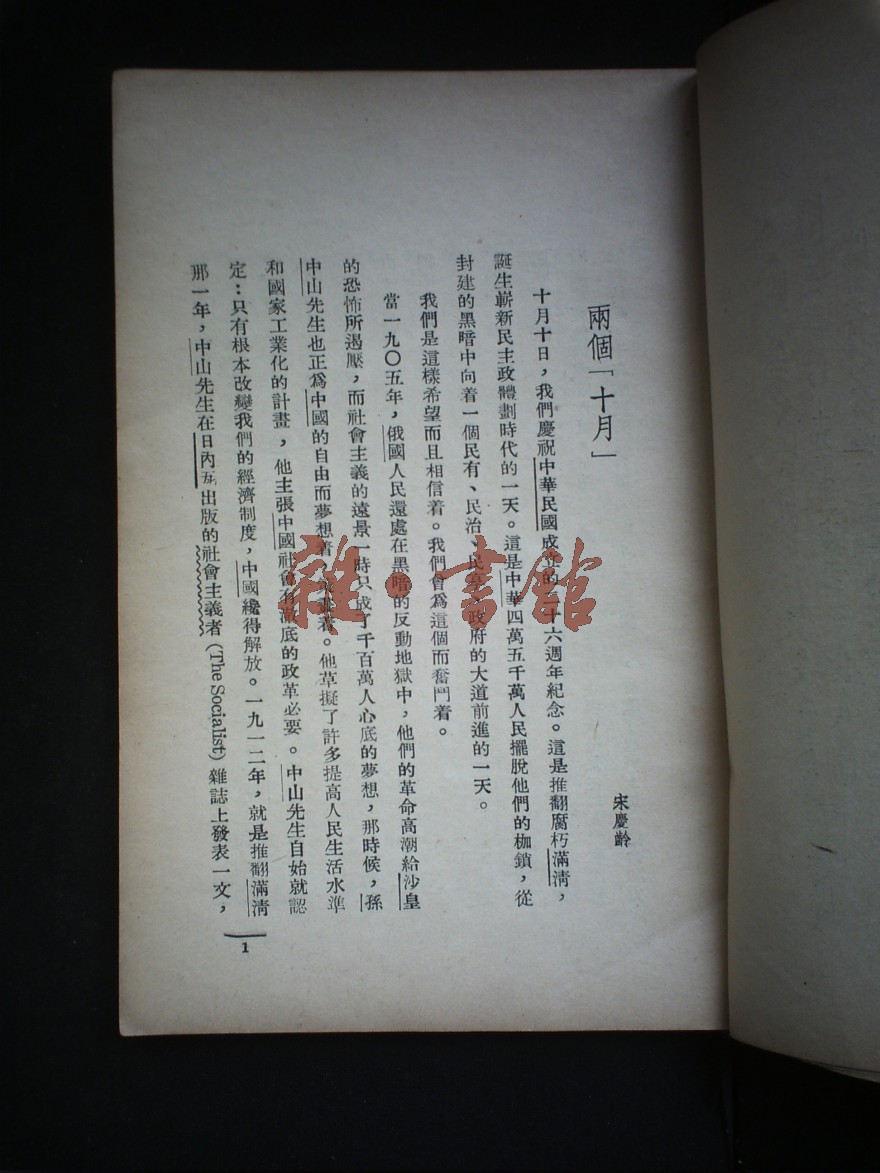 兩個「十月」
宋慶齡
十月十日，我們慶祝中華民國成立的二十六週年紀念。這是推翻腐朽滿清，
誕生嶄新民主政體劃時代的一天。這是中華四萬五千萬人民擺脫他們的枷鎖，從
封建的黑暗中向着一個民有、民治、民享政府的大道前進的一天。
我們是這樣希望而且相信着。我們會為這個而奮鬥着。
當一九〇五年，俄國人民還處在黑暗的反動地獄中，他們的革命高潮給沙皇
的恐怖所遏壓，而社會主義的遠景一時只成了千百萬人心底的夢想，那時候，孫
中山先生也正為中國的自由而夢想着、着。他草擬了許多提高人民生活水準
和國家工業化的計畫，他主張中國社會有澈底的政革必要。中山先生自始就認
定：只有根本改變我們的經濟制度，中國纔得解放。一九一二年，就是推翻滿清
那一年，中山先生在日內瓦出版的社會主義者 (The Socialist) 雜誌上發表一文，
1
雜·書館